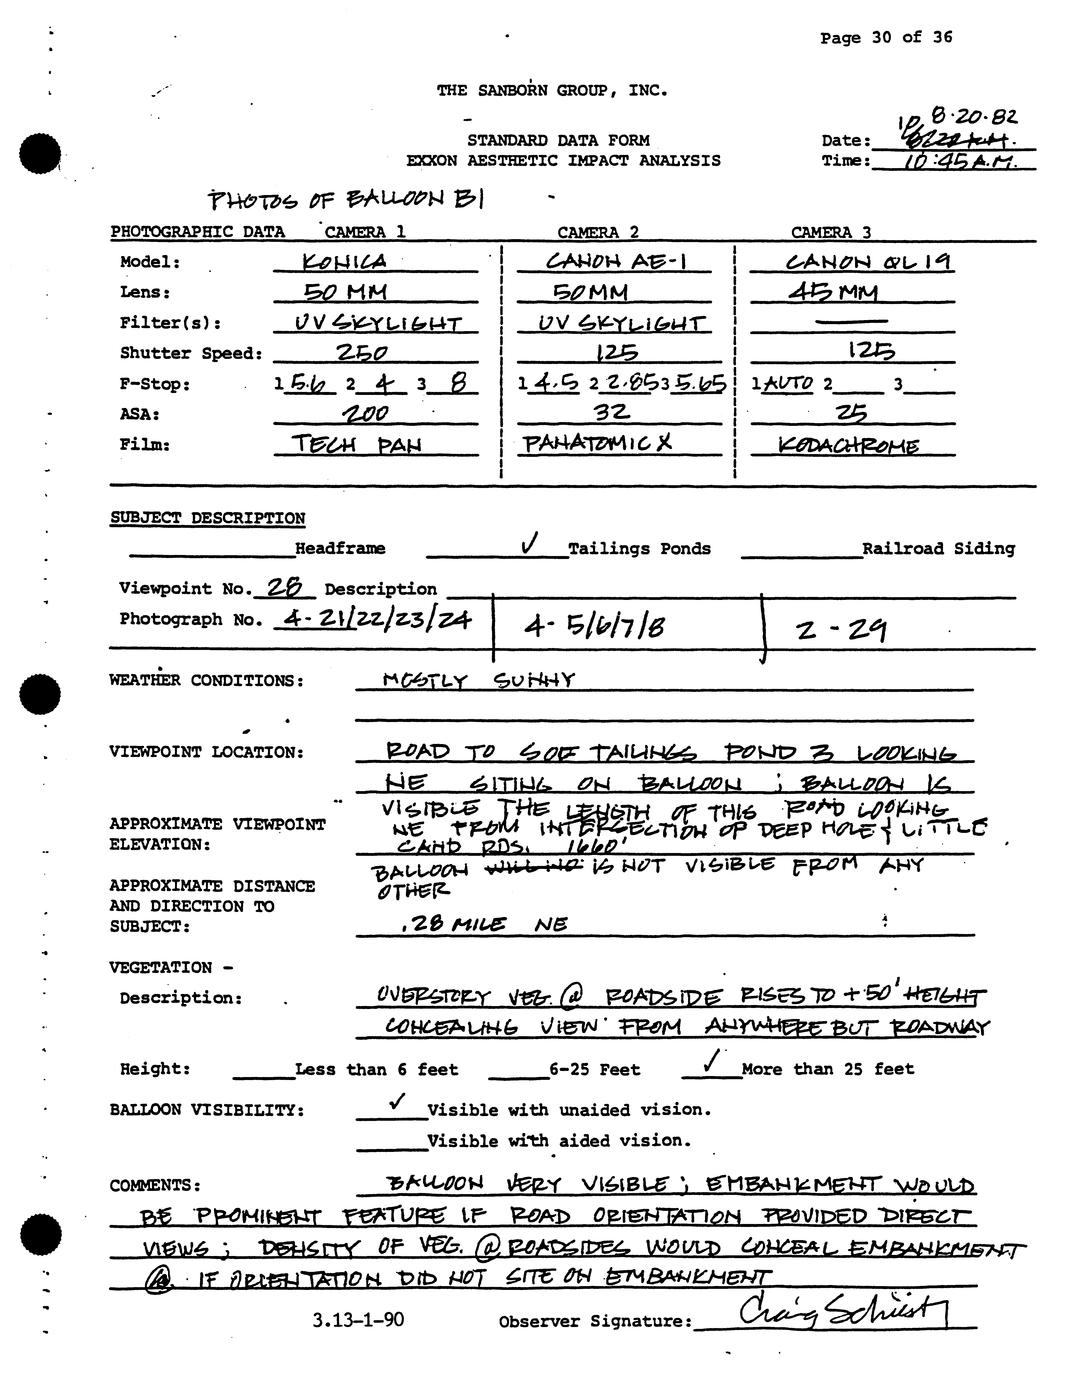 Page 30 of 36
THE SANBORN GROUP, INC.
8·20·82
STANDARD DATA FORM Date:
EXXON AESTHETIC IMPACT ANALYSIS Time: 10:45 A.M.
PHOTOS OF BALLOON B1
PHOTOGRAPHIC DATA CAMERA 1 CAMERA 2 CAMERA 3
Model: KONICA CANON AE-1 CANON QL19
Lens: 50 MM 50MM 45 MM
Filter(s): UV SKYLIGHT UV SKYLIGHT —
Shutter Speed: 250 125 125
F-Stop: 1 5.6 2 4 3 8 1 4.5 2 2.85 3 5.65 1 AUTO 2 3
ASA: 200 32 25
Film: TECH PAN PANATOMIC X KODACHROME
SUBJECT DESCRIPTION
Headframe ✓ Tailings Ponds Railroad Siding
Viewpoint No. 28 Description
Photograph No. 4-21/22/23/24 4-5/6/7/8 2-29
WEATHER CONDITIONS: MOSTLY SUNNY
VIEWPOINT LOCATION: ROAD TO S OF TAILINGS POND 3 LOOKING
NE SITING ON BALLOON ; BALLOON IS
VISIBLE THE LENGTH OF THIS ROAD LOOKING
APPROXIMATE VIEWPOINT NE FROM INTERSECTION OF DEEP HOLE & LITTLE
ELEVATION: SAND RDS. 1660'
BALLOON IS NOT VISIBLE FROM ANY
APPROXIMATE DISTANCE OTHER
AND DIRECTION TO
SUBJECT: .28 MILE NE
VEGETATION -
Description: OVERSTORY VEG. @ ROADSIDE RISES TO +50' HEIGHT
CONCEALING VIEW FROM ANYWHERE BUT ROADWAY
Height: Less than 6 feet 6-25 Feet ✓ More than 25 feet
BALLOON VISIBILITY: ✓ Visible with unaided vision.
Visible with aided vision.
COMMENTS: BALLOON VERY VISIBLE ; EMBANKMENT WOULD
BE PROMINENT FEATURE IF ROAD ORIENTATION PROVIDED DIRECT
VIEWS ; DENSITY OF VEG. @ ROADSIDES WOULD CONCEAL EMBANKMENT
IF ORIENTATION DID NOT SITE ON EMBANKMENT
3.13-1-90 Observer Signature: Craig